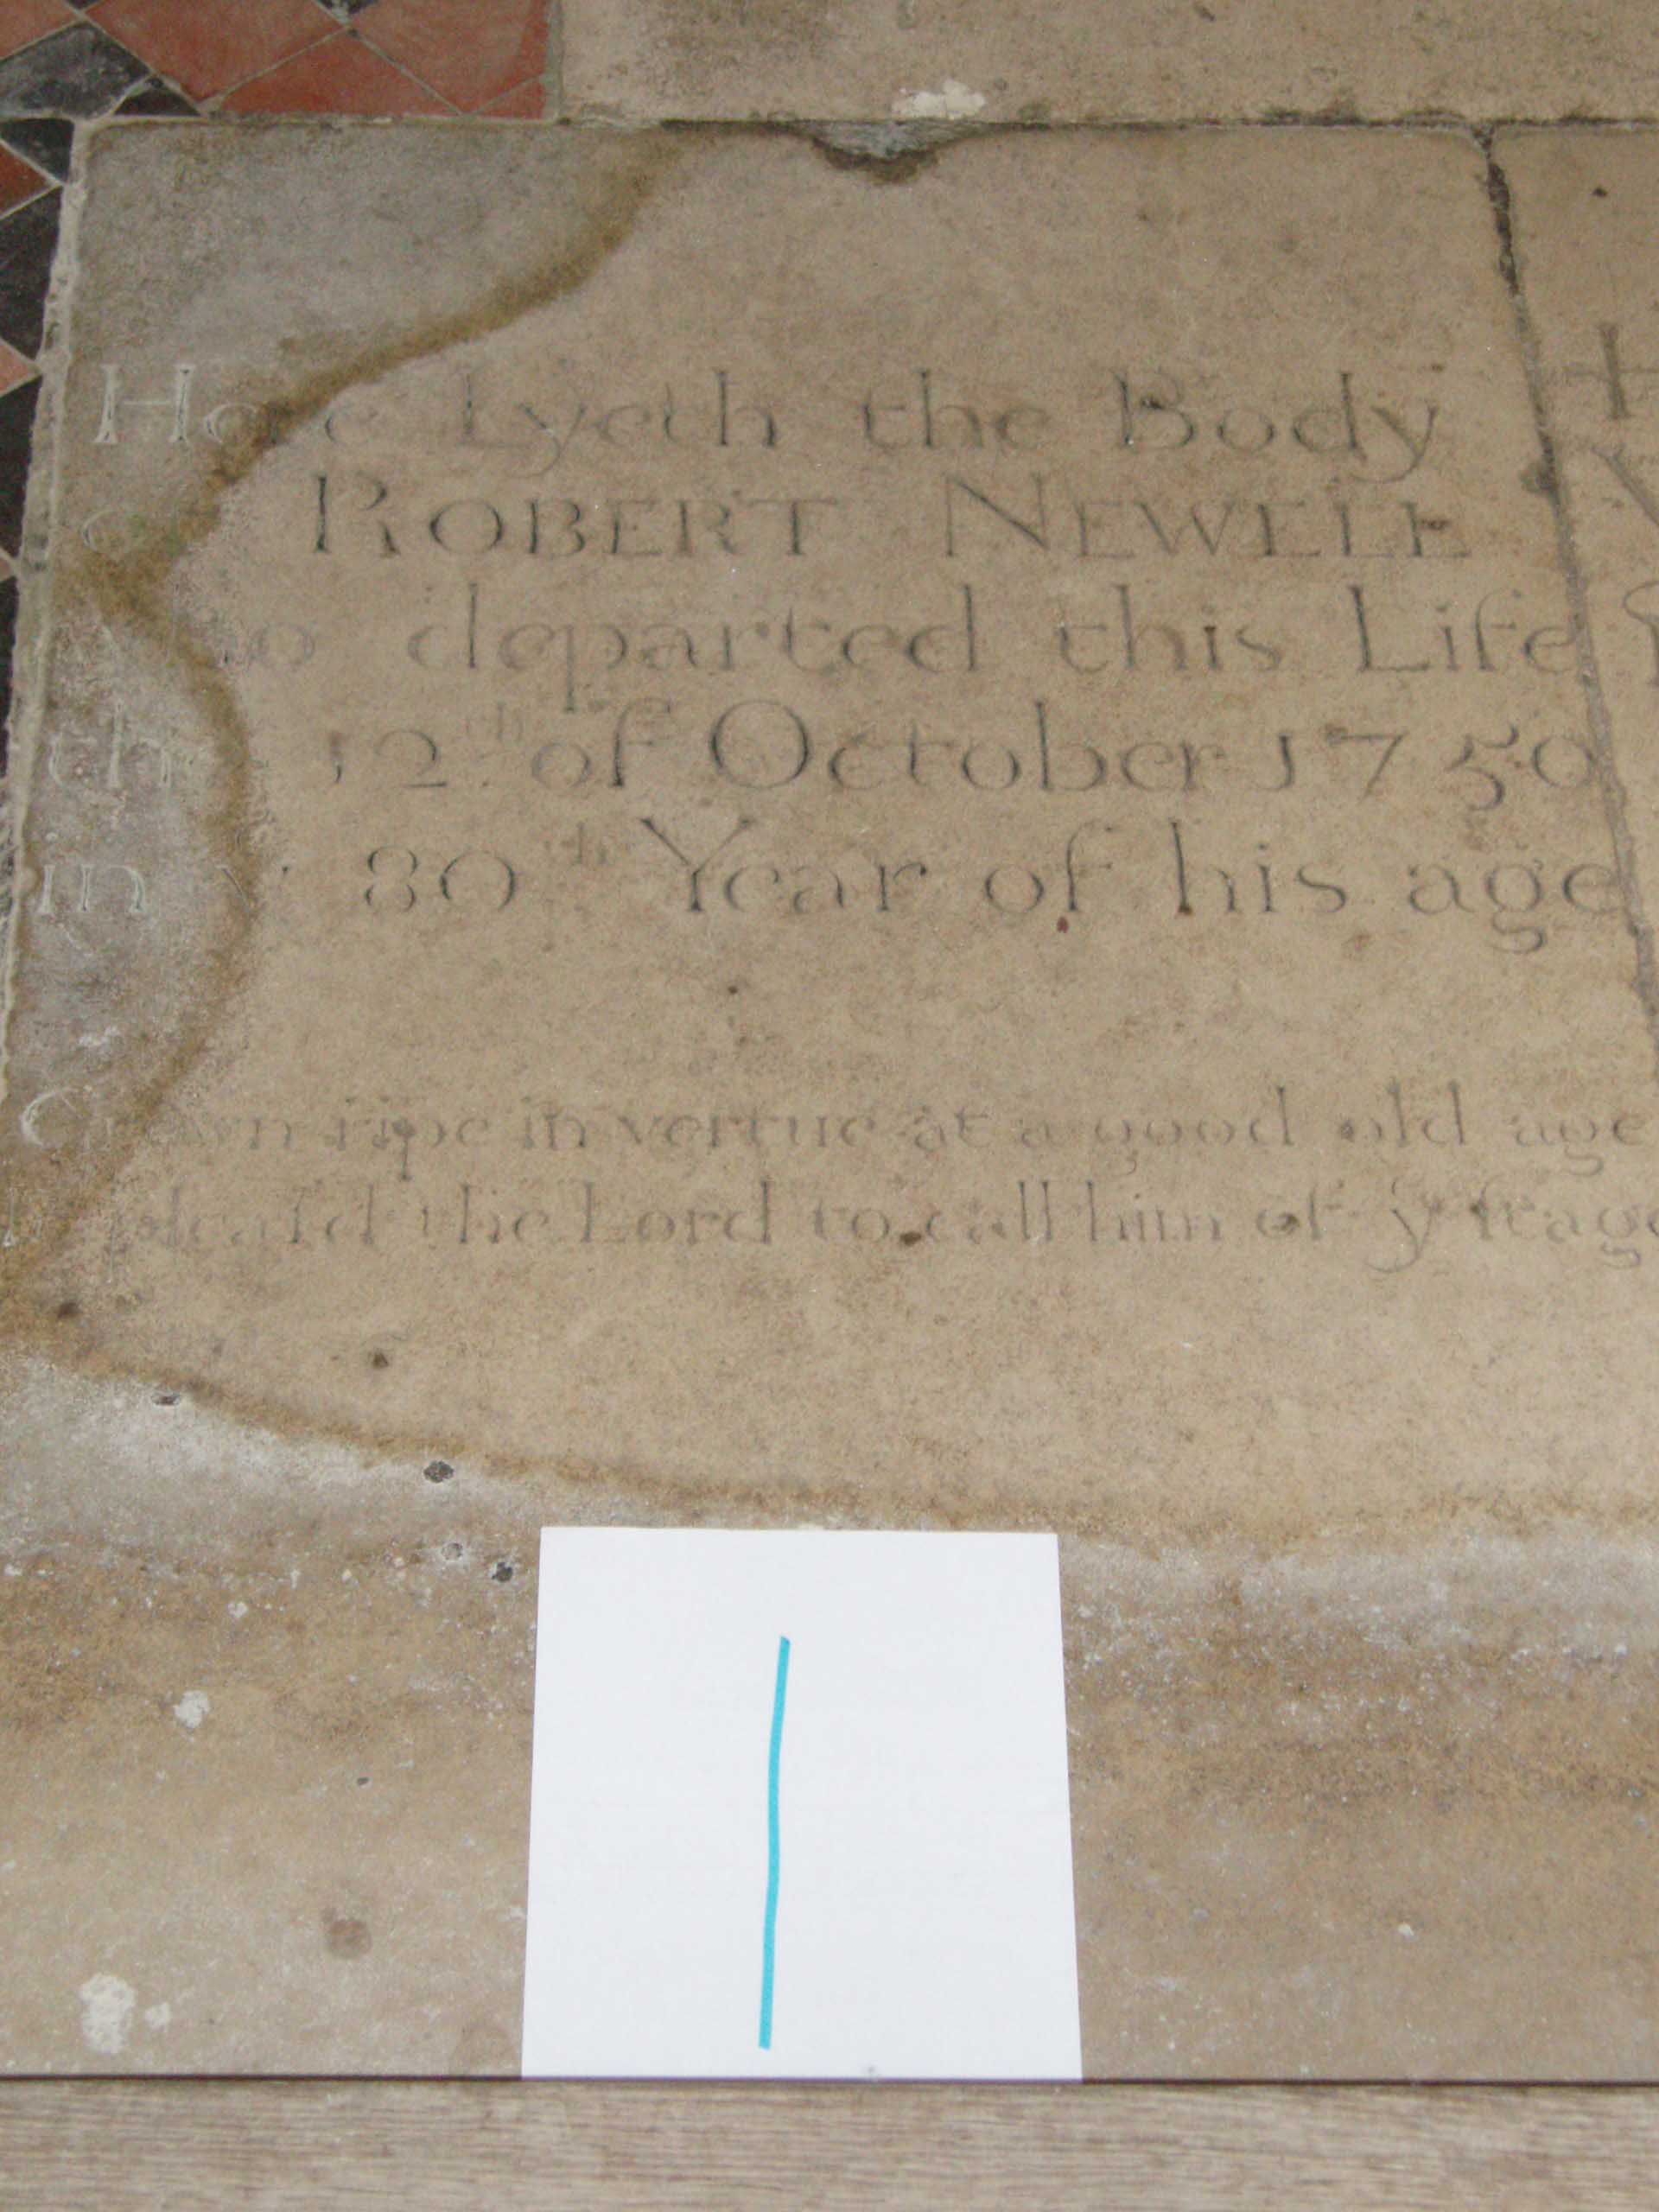 Here Lyeth the Body
of ROBERT NEWELL
who departed this Life
the 12th of October 1750
in ye 80th Year of his age
Grown ripe in vertue at a good old age
pleas'd the Lord to call him of ye
1